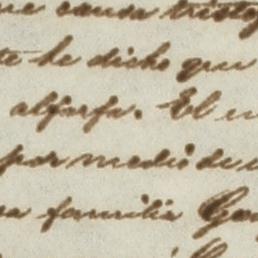 ue causa triste
te he dicho que
alfarfa. El u
por medio de u
sa familia Ga